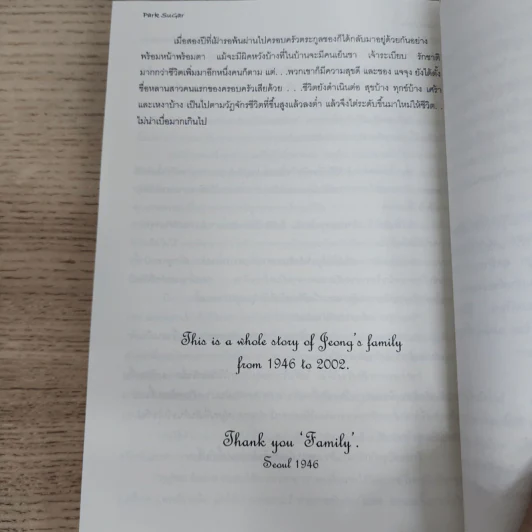 Park Sugar
เมื่อสองปีที่เฝ้ารอพ้นผ่านไปครอบครัวตระกูลของก็ได้กลับมาอยู่ด้วยกันอย่าง
พร้อมหน้าพร้อมตา แม้จะมีผิดหวังบ้างที่ในบ้านจะมีคนเย็นชา เจ้าระเบียบ รักชาติ
มากกว่าชีวิตเพิ่มมาอีกหนึ่งคนก็ตาม แต่. . .พวกเขาก็มีความสุขดี และของ แจจุง ยังได้ตั้ง
ชื่อหลานสาวคนแรกของครอบครัวเสียด้วย . . .ชีวิตยังดำเนินต่อ สุขบ้าง ทุกข์บ้าง เศร้า
และเหงาบ้าง เป็นไปตามวัฏจักรชีวิตที่ขึ้นสูงแล้วลงต่ำ แล้วจึงไต่ระดับขึ้นมาใหม่ให้ชีวิต
ไม่น่าเบื่อมากเกินไป
This is a whole story of Jeong's family
from 1946 to 2002.
Thank you 'Family'.
Seoul 1946